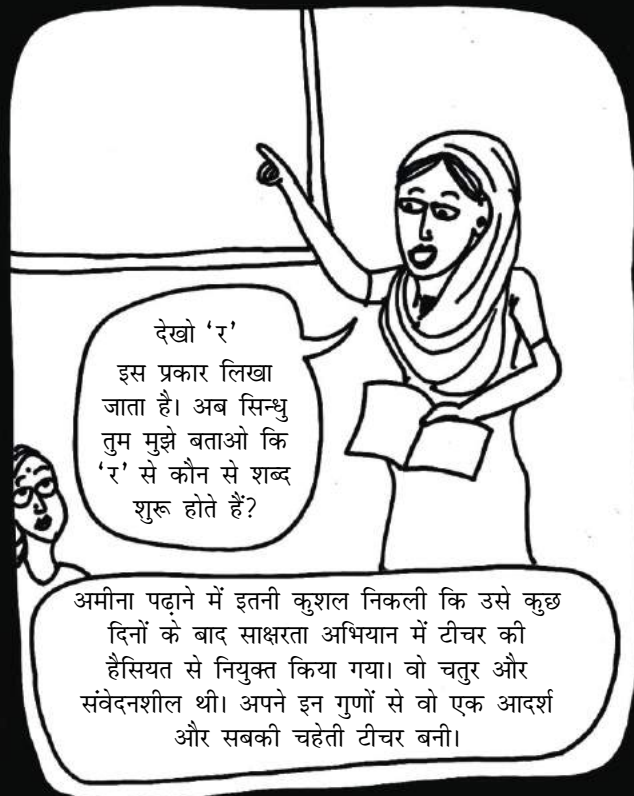 देखो ‘र’
इस प्रकार लिखा
जाता है। अब सिन्धु
तुम मुझे बताओ कि
‘र’ से कौन से शब्द
शुरू होते हैं?
अमीना पढ़ाने में इतनी कुशल निकली कि उसे कुछ
दिनों के बाद साक्षरता अभियान में टीचर की
हैसियत से नियुक्त किया गया। वो चतुर और
संवेदनशील थी। अपने इन गुणों से वो एक आदर्श
और सबकी चहेती टीचर बनी।